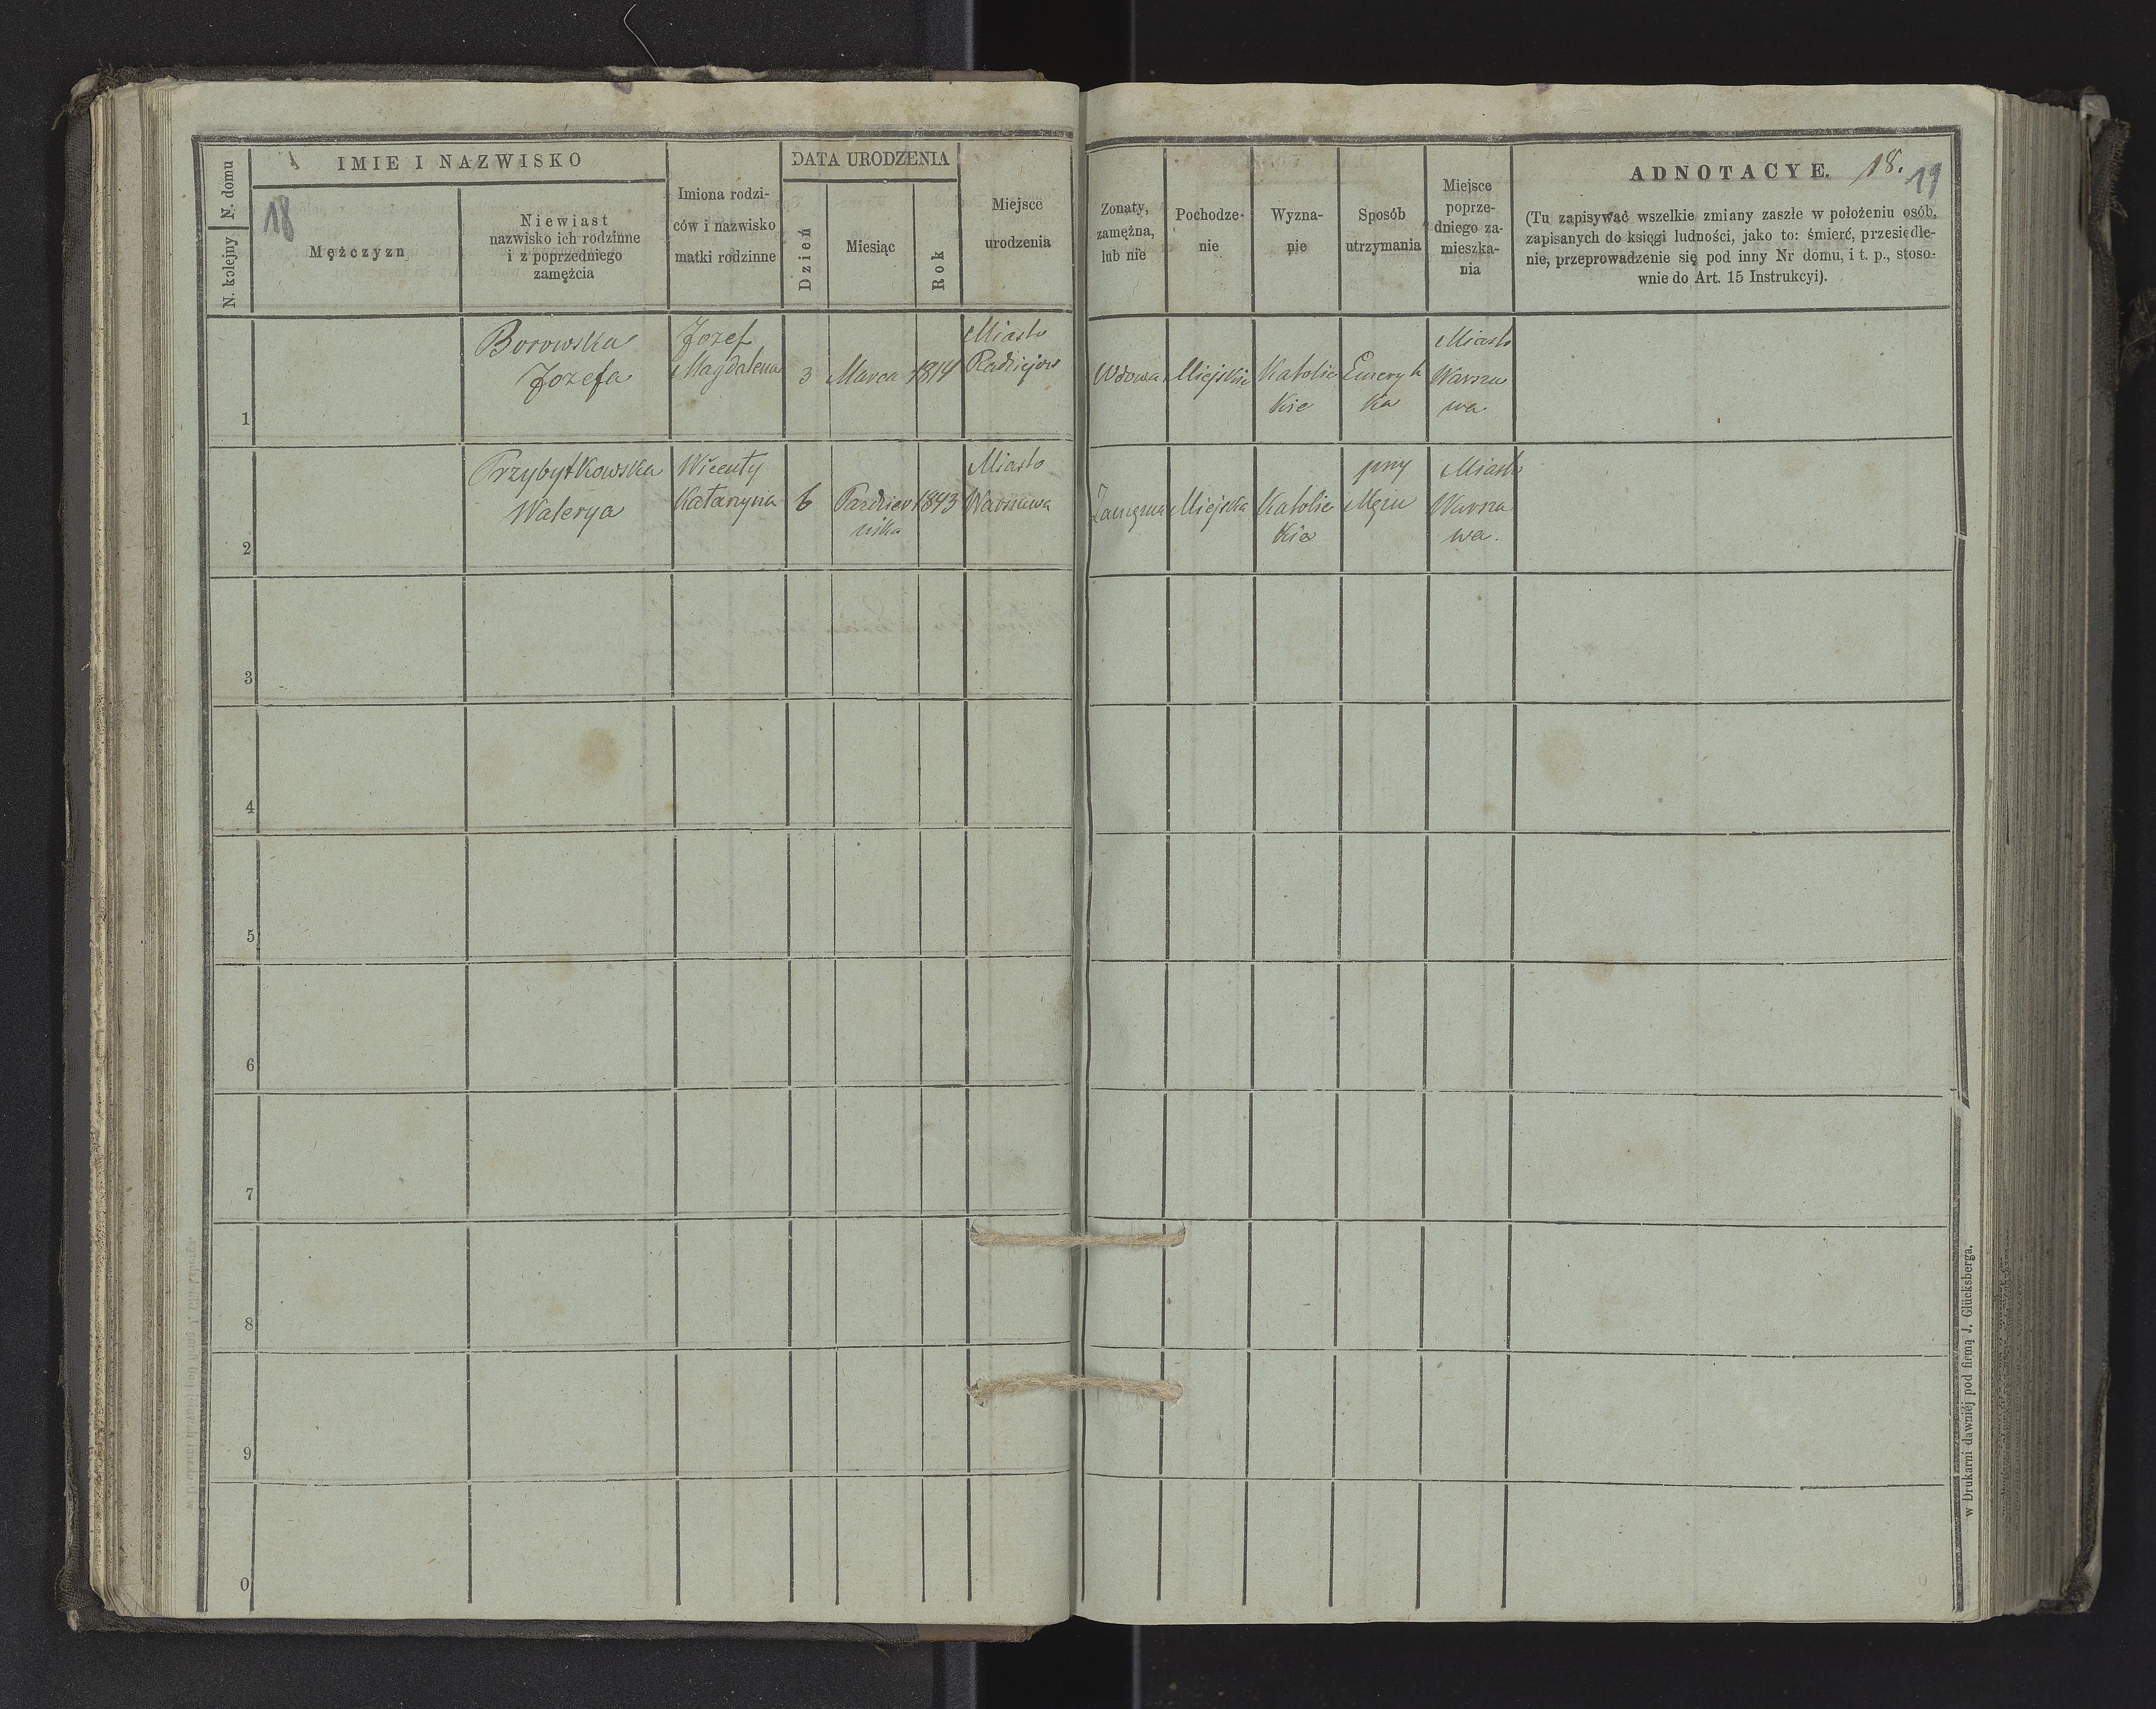 N. domu
N. kolejny
IMIE I NAZWISKO
18
Mężczyzn
Niewiast
nazwisko ich rodzinne
i z poprzedniego
zamężcia
Imiona rodzi-
ców i nazwisko
matki rodzinne
DATA URODZENIA
Dzień
Miesiąc
Rok
Miejsce
urodzenia
Zonaty,
zamężna,
lub nie
Pochodze-
nie
Wyzna-
nie
Sposób
utrzymania
Miejsce
poprze-
dniego za-
mieszka-
nia
ADNOTACYE.
18.
19
(Tu zapisywać wszelkie zmiany zaszłe w położeniu osób,
zapisanych do księgi ludności, jako to: śmierć, przesiedle-
nie, przeprowadzenie się pod inny Nr domu, i t. p., stoso-
wnie do Art. 15 Instrukcyi).
1
Borowska
Jozefa
Jozef
Magdalena
3
Marca
1814
Miasto
Radziejow
Wdowa
Miejskie
Katolic
kie
Emeryt
ka
Miasto
Warsza
wa
2
Przybytkowska
Walerya
Wicenty
Katarzyna
6
Pazdzier
nika
1843
Miasto
Warszawa
Zamęzna
Miejska
Katolic
kie
przy
Męzu
Miasto
Warsza
wa.
3
4
5
6
7
8
9
0
w Drukarni dawniéj pod firmą J. Glücksberga.